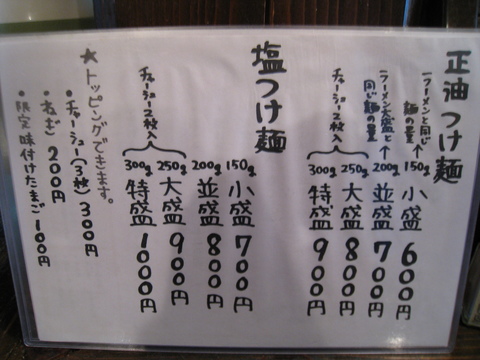 正油つけ麺
ラーメンと同じ麺の量
150g 小盛 600円
ラーメン大盛と同じ麺の量
200g 並盛 700円
250g 大盛 800円
300g 特盛 900円
チャーシュー2枚入
塩つけ麺
150g 小盛 700円
200g 並盛 800円
250g 大盛 900円
300g 特盛 1000円
チャーシュー2枚入
★トッピングできます。
・チャーシュー(3枚)300円
・ねぎ 200円
・限定味付けたまご 100円